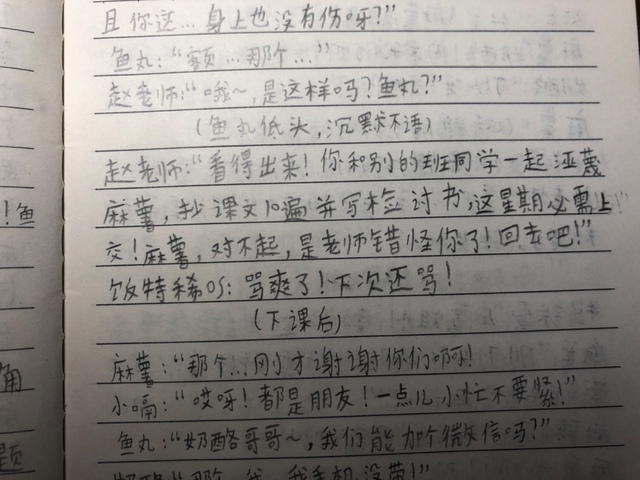 且你这…身上也没有伤呀?”
鱼丸:“额…那个…”
赵老师:“哦~,是这样吗?鱼丸?”
(鱼丸低头,沉默不语)
赵老师:“看得出来!你和别的班同学一起诬蔑
!鱼
麻薯,抄课文10遍并写检讨书,这星期必需上
交!麻薯,对不起,是老师错怪你了!回去吧!”
饭特稀OS:骂爽了!下次还骂!
(下课后)
角
麻薯:“那个…刚才谢谢你们啊!
小嗝:“哎呀!都是朋友!一点儿小忙不要紧!”
鱼丸:“奶酪哥哥~,我们能加个微信吗?”
题
奶酪:“那个…我…我手机没带!”